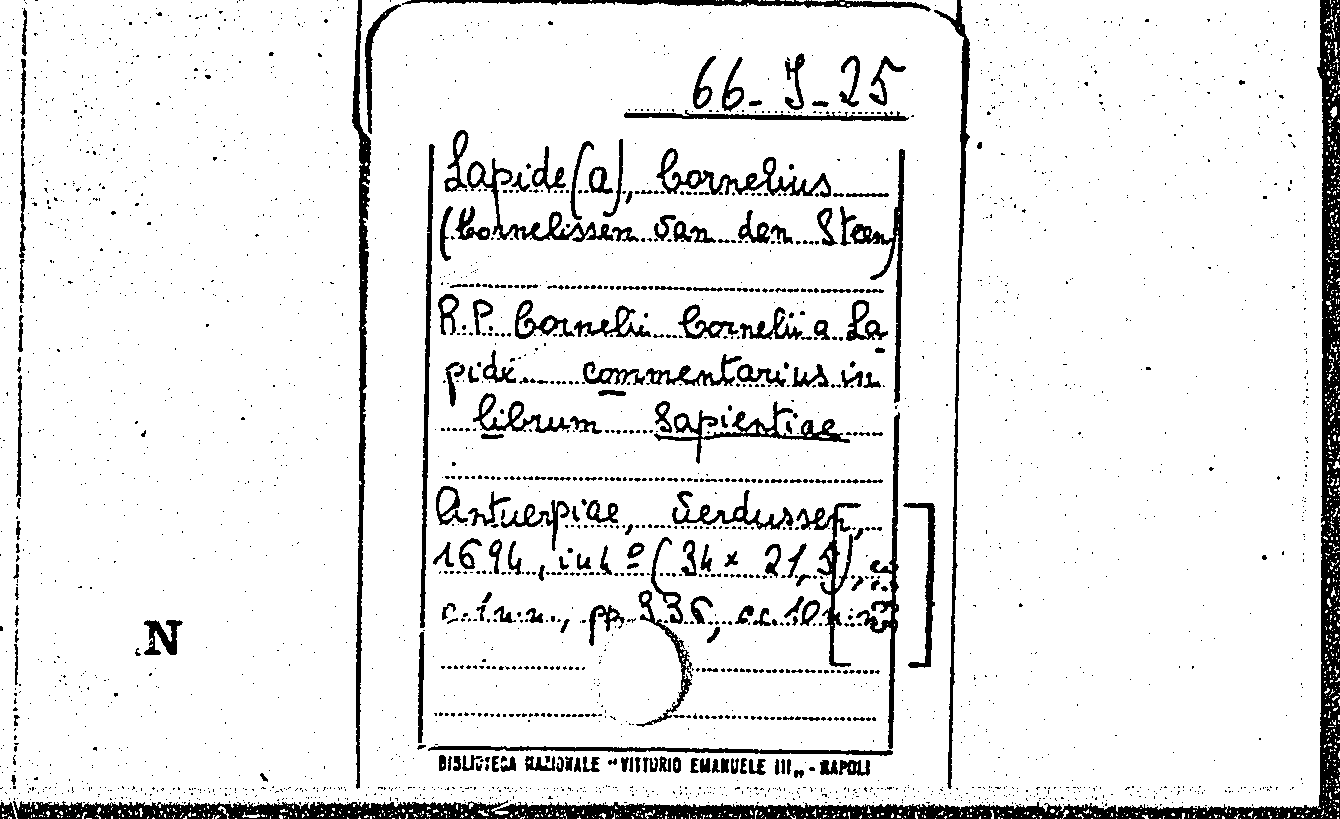 66-J-25
Lapide (a), Cornelius
(Cornelissen van den Steen)
R.P. Cornelii Cornelii a La
pide... commentarius in
librum Sapientiae
Antuerpiae, Verdussen,
1694, in 4º (34 x 21,5),
c. 1 n.n., pp. 336, cc. 10 n.n.
N
BIBLIOTECA NAZIONALE "VITTORIO EMANUELE III„ - NAPOLI